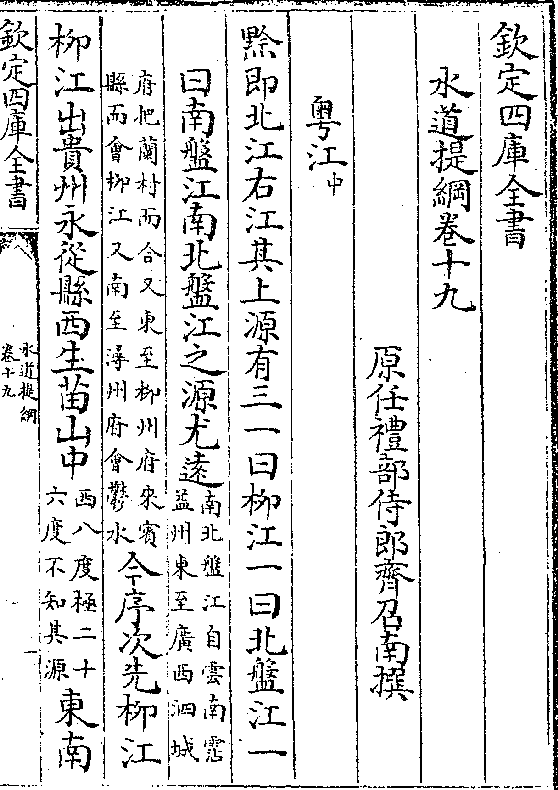 欽定四庫全書
水道提綱卷十九
原任禮部侍郎齊召南撰
粤江中
黔即北江右江其上源有三一曰柳江一曰北盤江一
曰南盤江南北盤江之源尤逺南北盤江自雲南霑
益州東至廣西泗城
府把蘭村而合又東至柳州府來賓
縣而會柳江又南至潯州府會鬱水今序次先柳江
柳江出貴州永從縣西生苗山中西八度極二十
六度不知其源東南
欽定四庫全書
水道提綱
卷十九
一